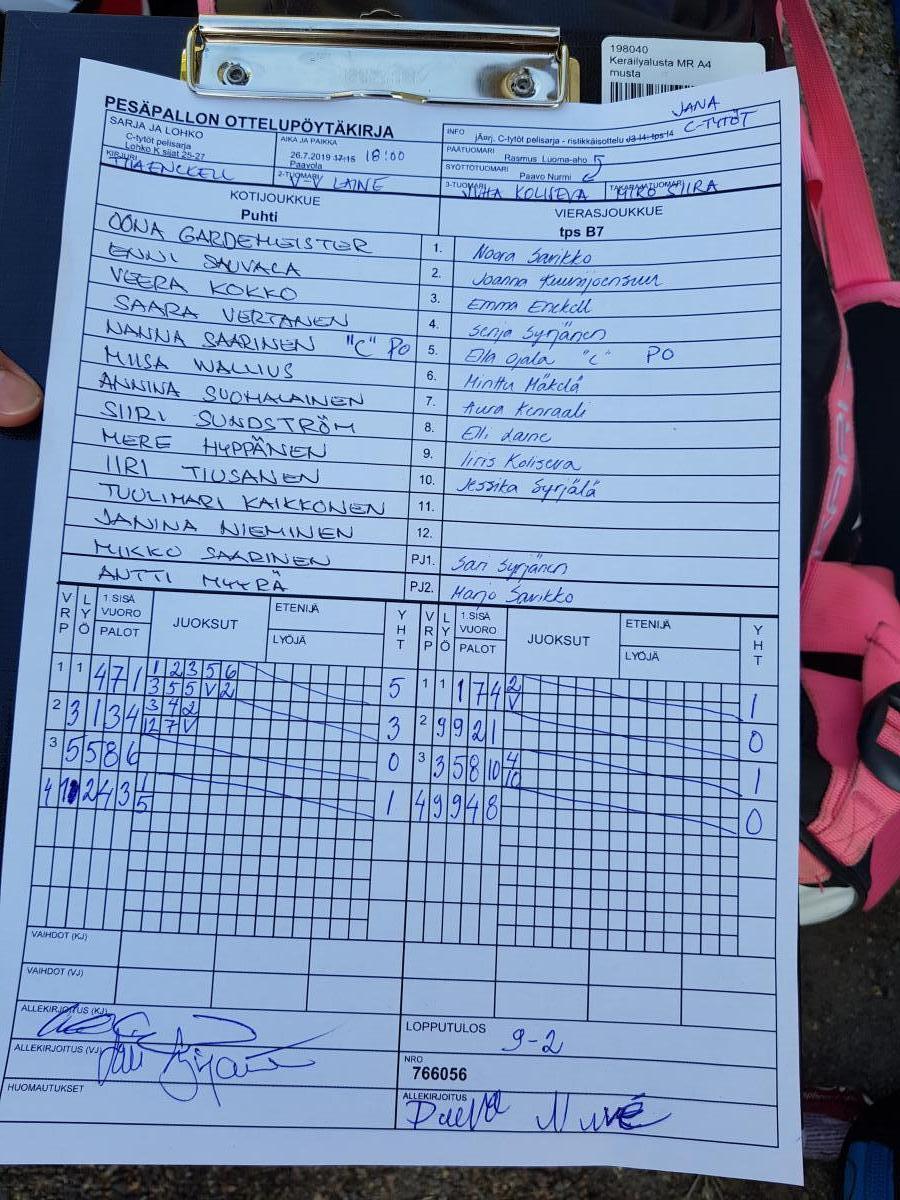 198040
Keräilyalusta MR A4
musta
JANA
C-TYTÖT
PESÄPALLON OTTELUPÖYTÄKIRJA
SARJA JA LOHKO
C-tytöt pelisarja
Lohko K sijat 25-27
AIKA JA PAIKKA
26.7.2019 17:15 18:00
Paavola
INFO
jÄarj. C-tytöt pelisarja - ristikkäisottelu J3 I4: tps I4
PÄÄTUOMARI
Rasmus Luoma-aho
SYÖTTÖTUOMARI
Paavo Nurmi
KIRJURI
TIIA ENCKELL
2-TUOMARI
V-V LAINE
3-TUOMARI
JUHA KOLISEVA
TAKARAJATUOMARI
MIRO SIIRA
KOTIJOUKKUE
Puhti
VIERASJOUKKUE
tps B7
OONA GARDEMEISTER 1. Noora Sarikko
ENNI SAUVALA 2. Joanna Kuumjoensuu
VEERA KOKKO 3. Emma Enckell
SAARA VERTANEN 4. Senja Syrjänen
NANNA SAARINEN "C" PO 5. Ella Ojala "C" PO
MIISA WALLIUS 6. Minttu Mäkelä
ANNINA SUOMALAINEN 7. Aura Kenraali
SIIRI SUNDSTRÖM 8. Elli Laine
MERE HYPPÄNEN 9. Iiris Koliseva
IIRI TIUSANEN 10. Jessika Syrjälä
TUULIMARI KAIKKONEN 11.
JANINA NIEMINEN 12.
MIKKO SAARINEN PJ1. Sari Syrjänen
ANTTI MYYRÄ PJ2. Marjo Sarikko
VRP LYÖ 1.SISÄ VUORO PALOT JUOKSUT ETENIJÄ LYÖJÄ YHT VRP LYÖ 1.SISÄ VUORO PALOT JUOKSUT ETENIJÄ LYÖJÄ YHT
1 1 4 7 1 1 2 3 5 6 5 1 1 1 7 4 2 1
3 5 5 V 2 V
2 3 1 3 4 3 4 2 3 2 9 9 2 1 0
12 7 V
3 5 5 8 6 0 3 3 5 8 10 4 1
10
4 1 2 4 3 1 1 4 9 9 4 8 0
5
VAIHDOT (KJ)
VAIHDOT (VJ)
ALLEKIRJOITUS (KJ)
ALLEKIRJOITUS (VJ)
HUOMAUTUKSET
LOPPUTULOS
9-2
NRO
766056
ALLEKIRJOITUS
Paavo Nurmi